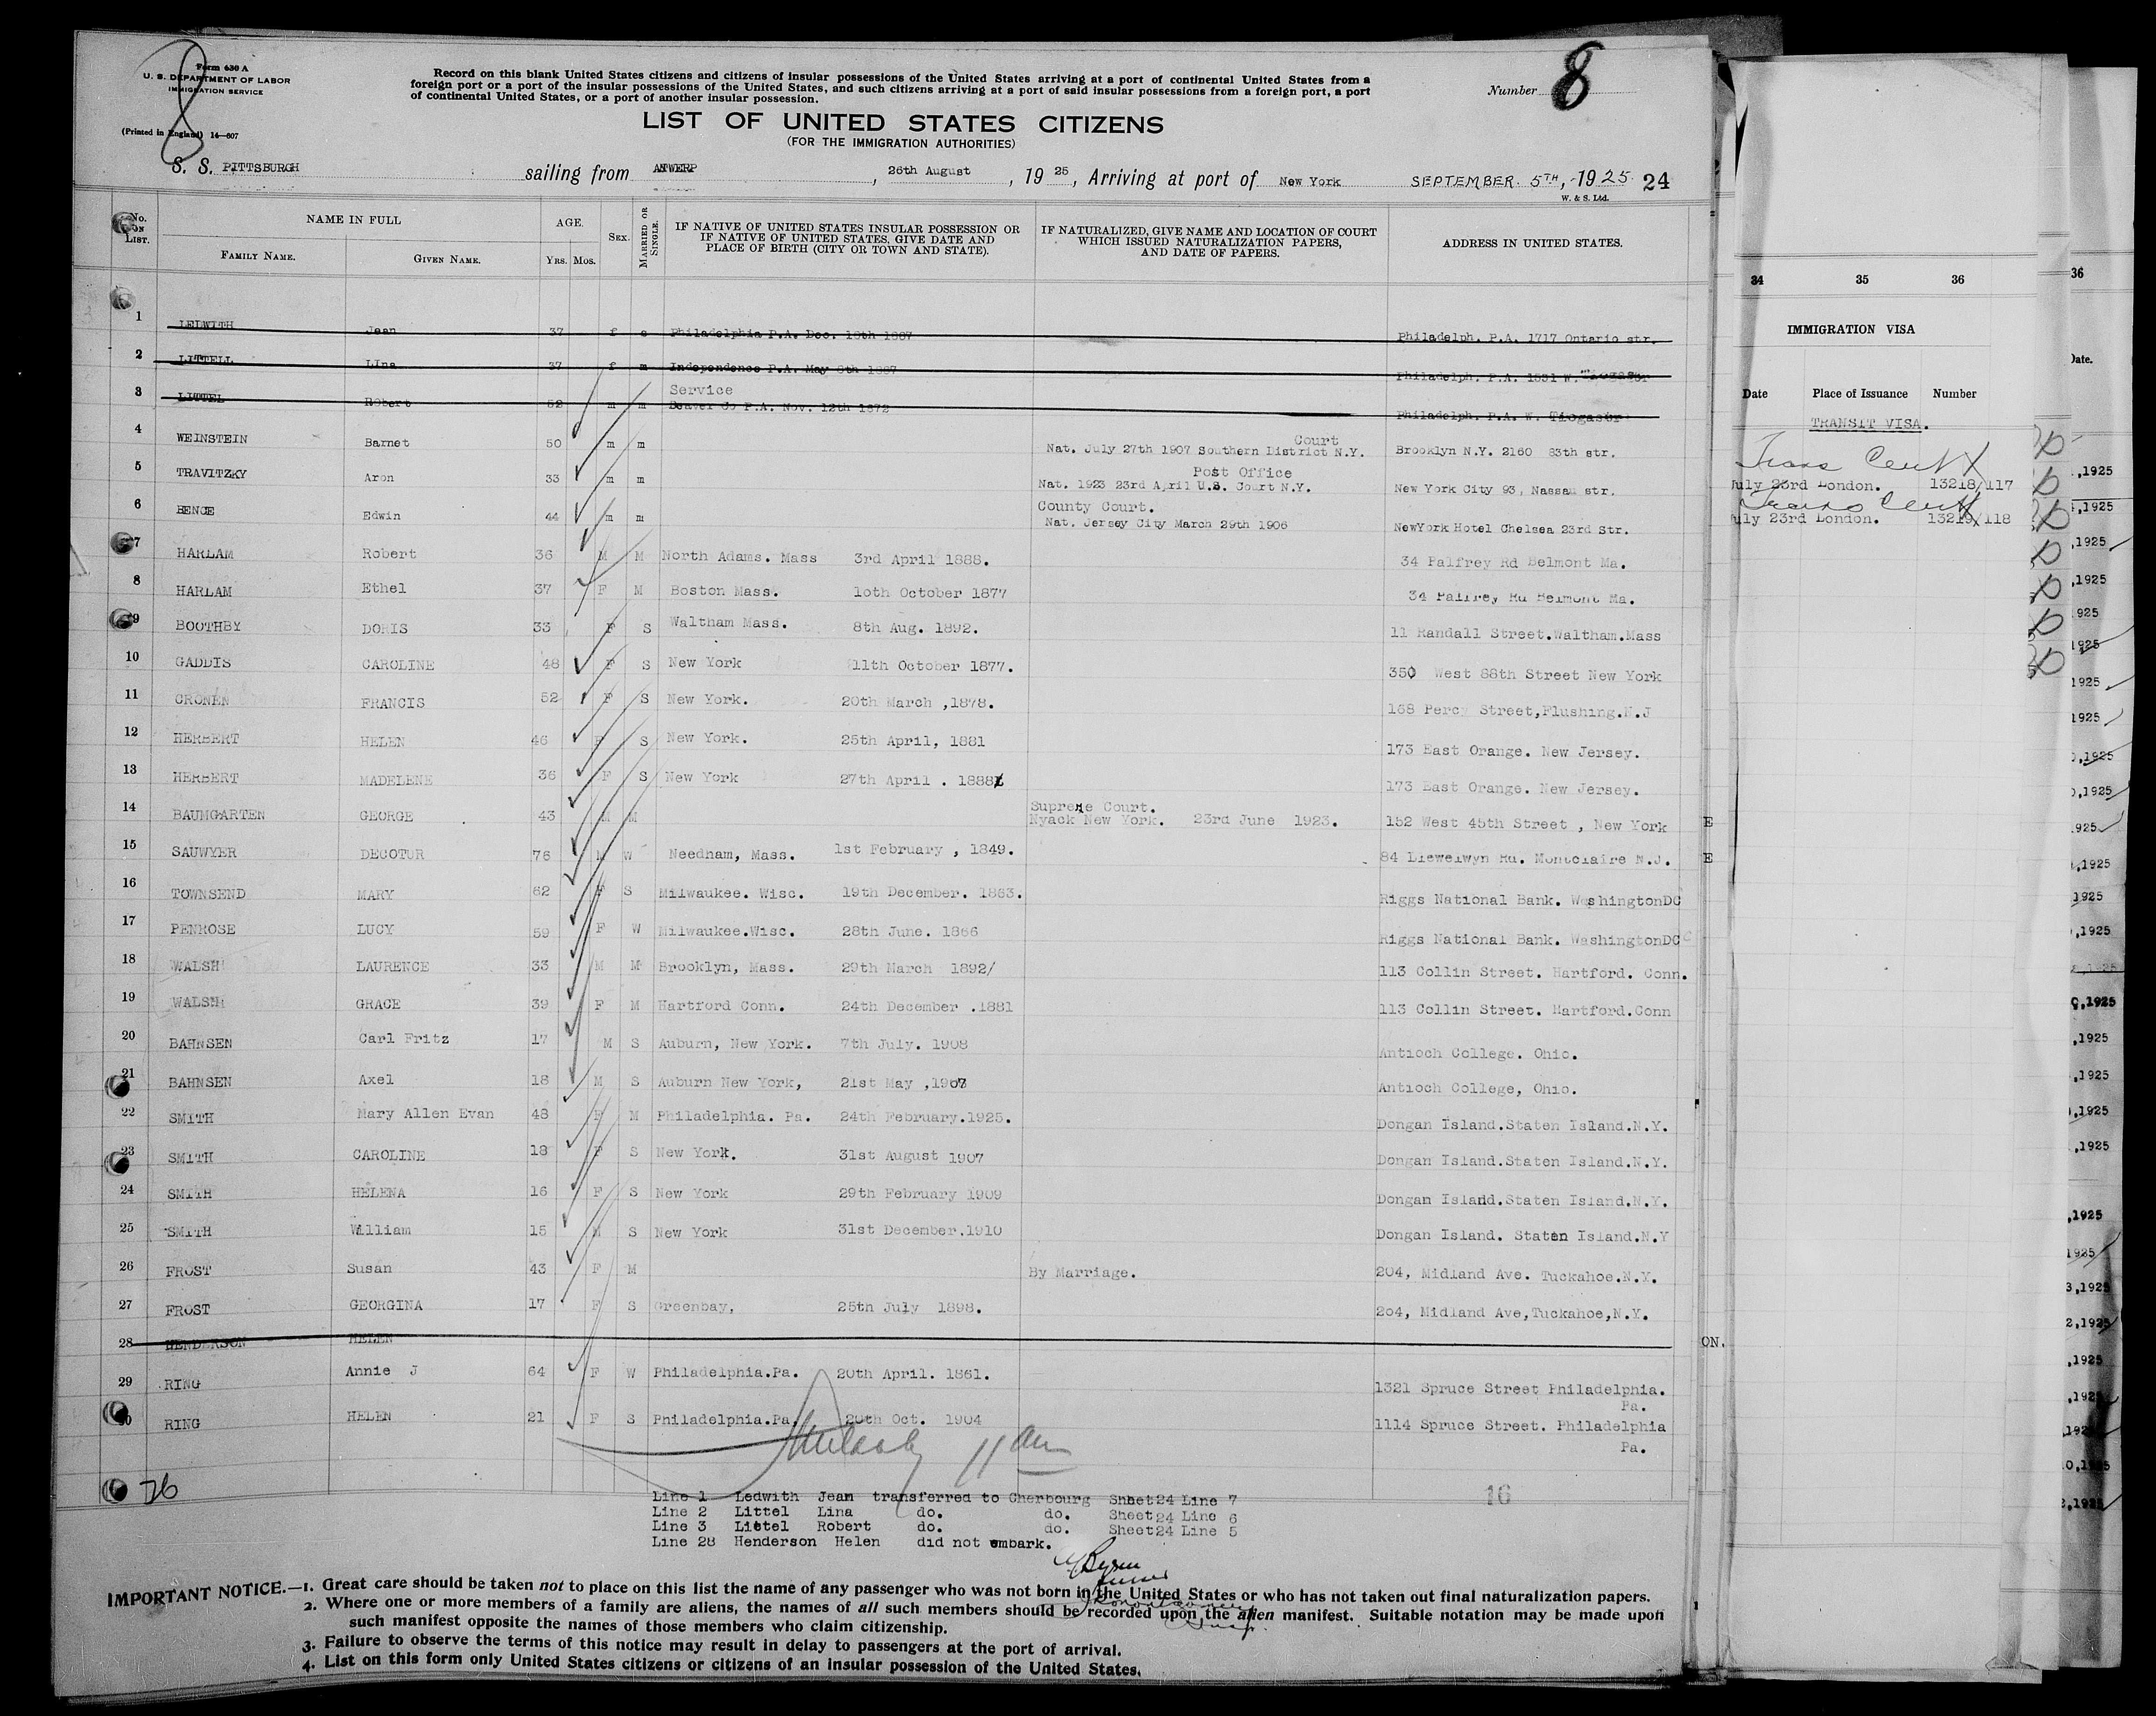 Form 630 A
U. S. DEPARTMENT OF LABOR
IMMIGRATION SERVICE
(Printed in England) 14—607
Record on this blank United States citizens and citizens of insular possessions of the United States arriving at a port of continental United States from a
foreign port or a port of the insular possessions of the United States, and such citizens arriving at a port of said insular possessions from a foreign port, a port
of continental United States, or a port of another insular possession.
Number 8
LIST OF UNITED STATES CITIZENS
(FOR THE IMMIGRATION AUTHORITIES)
S. S. PITTSBURGH sailing from ANTWERP, 26th August, 1925, Arriving at port of New York SEPTEMBER. 5TH, 1925. 24
W. & S. Ltd.
No. ON LIST. NAME IN FULL AGE. SEX. MARRIED OR SINGLE. IF NATIVE OF UNITED STATES INSULAR POSSESSION OR IF NATIVE OF UNITED STATES, GIVE DATE AND PLACE OF BIRTH (CITY OR TOWN AND STATE). IF NATURALIZED, GIVE NAME AND LOCATION OF COURT WHICH ISSUED NATURALIZATION PAPERS, AND DATE OF PAPERS. ADDRESS IN UNITED STATES.
FAMILY NAME. GIVEN NAME. YRS. MOS.
1 LEDWITH Jean 37 f s Philadelphia P.A. Dec. 18th 1887 Philadelph. P.A. 1717 Ontario str.
2 LITTELL Lina 37 f m Independence P.A. May 8th 1887 Philadelph. P.A. 1531 W. Tiogastr
3 LITTEL Robert 52 m m Service Beaver Co P.A. Nov. 12th 1872 Philadelph. P.A. W. Tiogastr
4 WEINSTEIN Barnet 50 m m Nat. July 27th 1907 Southern District N.Y. Court Brooklyn N.Y. 2160 83th str.
5 TRAVITZKY Aron 33 m m Post Office Nat. 1923 23rd April U.S. Court N.Y. New York City 93, Nassau str.
6 BENCE Edwin 44 m m County Court. Nat. Jersey City March 29th 1906 NewYork Hotel Chelsea 23rd Str.
7 HARLAM Robert 36 M M North Adams. Mass 3rd April 1888. 34 Palfrey Rd Belmont Ma.
8 HARLAM Ethel 37 F M Boston Mass. 10th October 1877 34 Palfrey Rd Belmont Ma.
9 BOOTHBY DORIS 33 F S Waltham Mass. 8th Aug. 1892. 11 Randall Street.Waltham.Mass
10 GADDIS CAROLINE 48 F S New York 11th October 1877. 350 West 88th Street New York
11 CRONEN FRANCIS 52 F S New York. 20th March ,1878. 168 Percy Street,Flushing.N.J
12 HERBERT HELEN 46 F S New York. 25th April, 1881 173 East Orange. New Jersey.
13 HERBERT MADELENE 36 F S New York 27th April . 1888 173 East Orange. New Jersey.
14 BAUMGARTEN GEORGE 43 M M Supreme Court. Nyack New York. 23rd June 1923. 152 West 45th Street , New York
15 SAUWYER DECOTUR 76 M W Needham, Mass. 1st February , 1849. 84 Llewelwyn Rd. Montclaire N.J.
16 TOWNSEND MARY 62 F S Milwaukee. Wisc. 19th December. 1863. Riggs National Bank. WashingtonDC
17 PENROSE LUCY 59 F W Milwaukee.Wisc. 28th June. 1866 Riggs National Bank. WashingtonDC
18 WALSH LAURENCE 33 M M Brooklyn, Mass. 29th March 1892/ 113 Collin Street. Hartford. Conn.
19 WALSH GRACE 39 F M Hartford Conn. 24th December .1881 113 Collin Street. Hartford.Conn
20 BAHNSEN Carl Fritz 17 M S Auburn, New York. 7th July. 1908 Antioch College. Ohio.
21 BAHNSEN Axel 18 M S Auburn New York, 21st May ,1907 Antioch College, Ohio.
22 SMITH Mary Allen Evan 48 F M Philadelphia. Pa. 24th February.1925. Dongan Island.Staten Island.N.Y.
23 SMITH CAROLINE 18 F S New York. 31st August 1907 Dongan Island.Staten Island.N.Y.
24 SMITH HELENA 16 F S New York 29th February 1909 Dongan Island.Staten Island.N.Y.
25 SMITH William 15 M S New York 31st December.1910 Dongan Island. Staten Island.N.Y
26 FROST Susan 43 F M By Marriage. 204, Midland Ave. Tuckahoe.N.Y.
27 FROST GEORGINA 17 F S Greenbay, 25th July 1898. 204, Midland Ave,Tuckahoe,N.Y.
28 HENDERSON HELEN
29 RING Annie J 64 F W Philadelphia.Pa. 20th April. 1861. 1321 Spruce Street Philadelphia. Pa.
30 RING HELEN 21 F S Philadelphia.Pa. 20th Oct. 1904 1114 Spruce Street. Philadelphia Pa.
11 am
26
16
Line 1 Ledwith Jean transferred to Cherbourg Sheet 24 Line 7
Line 2 Littel Lina do. do. Sheet 24 Line 6
Line 3 Littel Robert do. do. Sheet 24 Line 5
Line 28 Henderson Helen did not embark.
IMPORTANT NOTICE.—1. Great care should be taken not to place on this list the name of any passenger who was not born in the United States or who has not taken out final naturalization papers.
2. Where one or more members of a family are aliens, the names of all such members should be recorded upon the alien manifest. Suitable notation may be made upon
such manifest opposite the names of those members who claim citizenship.
3. Failure to observe the terms of this notice may result in delay to passengers at the port of arrival.
4. List on this form only United States citizens or citizens of an insular possession of the United States.
34 35 36
IMMIGRATION VISA
Date Place of Issuance Number
TRANSIT VISA.
Trans Cert
July 23rd London. 13218/117
Trans Cert
July 23rd London. 13219/118
E
E
ON.
36
Date.